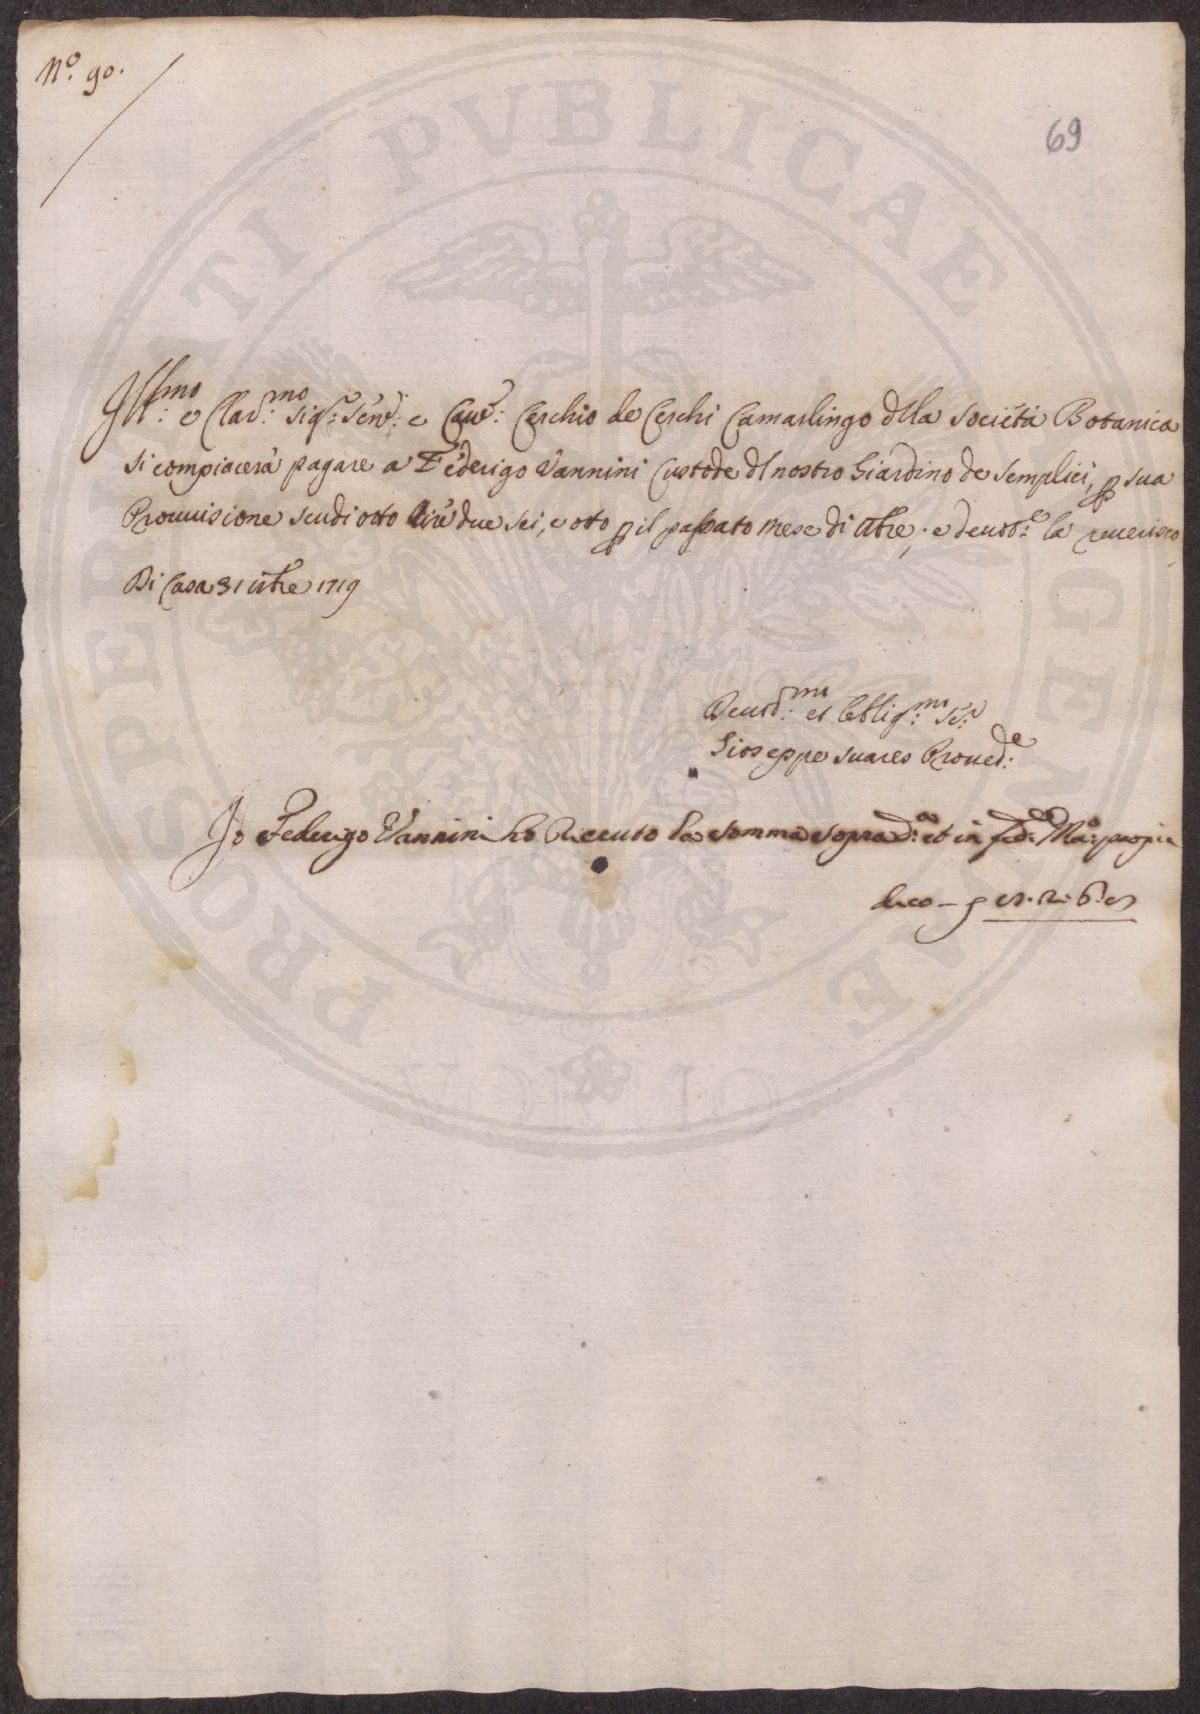 N.o 90.
69
Ill.mo e Clar.mo Sig.r Sen.r e Cav.r Cerchio de Cerchi Camarlingo dlla Società Botanica
si compiacerà pagare a Federigo Vannini Custode dl nostro Giardino de Semplici, p sua
Provvisione scudi otto lire due sei, e otto p il passato mese di 8bre; e devot.e la reverisco
Di Casa 31 8bre 1719
Devot.mo et Obblig.mo Se.re
Gioseppe Suares Proved.re
Io Federigo Vannini ho Riceuto la somma sopra d.a et in fed.e Ma.o propia
dico - 8. 2. 6. 8
PROSPERITATI PVBLICAE